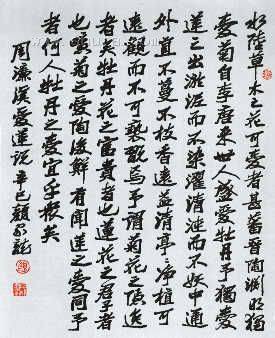 水陸草木之花可愛者甚蕃晉陶淵明獨
愛菊自李唐来世人盛愛牡丹予獨愛
蓮之出淤泥而不染濯清漣而不妖中通
外直不蔓不枝香遠益清亭淨植可
遠觀而不可褻翫焉予謂菊花之隱逸
者矣牡丹花之富貴者也蓮花之君子者
也噫菊之愛陶後鮮有聞蓮之愛同予
者何人牡丹之愛宜乎衆矣
周濂溪愛蓮說辛巳